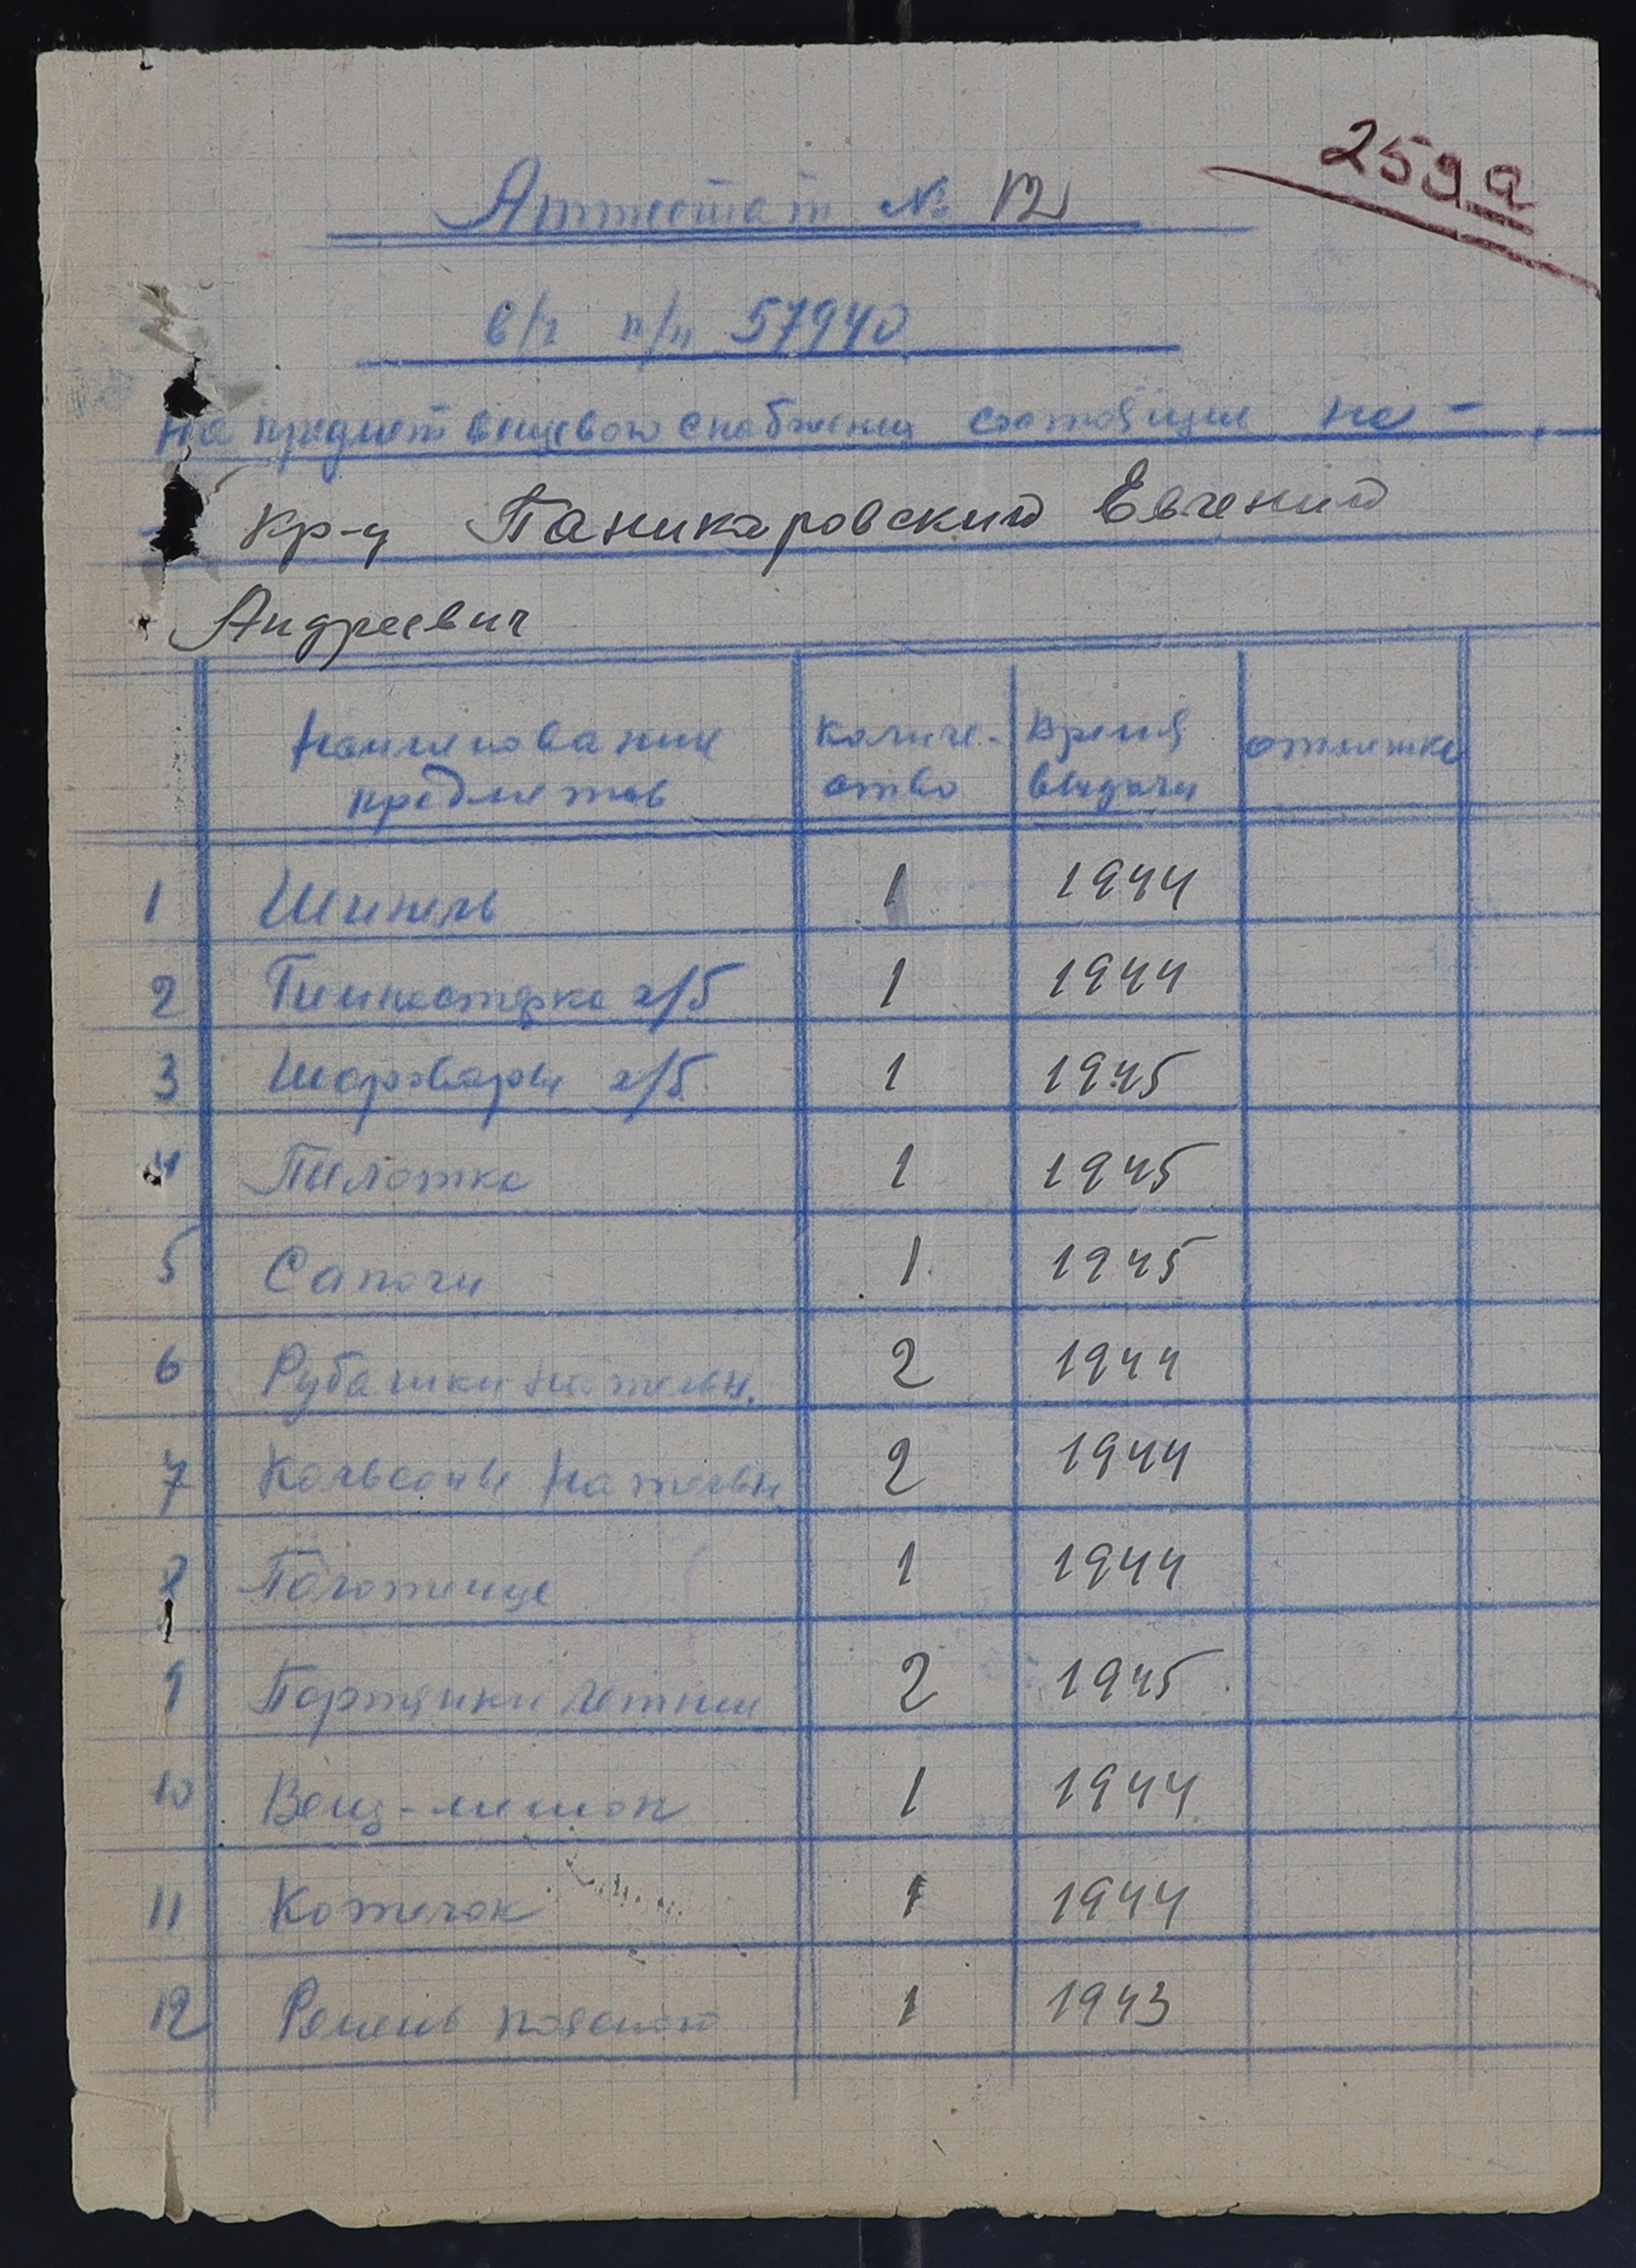 259а
Аттестат № 12
в/ч п/п 57940
на предмет вещевого снабжения состоящие на -
Кр-ц Паникаровский Евгений
Андреевич
Наименование предметов Количе-ство Время выдачи отметка
1 Шинель 1 1944
2 Гимнастерка х/б 1 1944
3 Шаровары х/б 1 1945
4 Пилотка 1 1945
5 Сапоги 1 1945
6 Рубашки нательн. 2 1944
7 Кальсоны нательн. 2 1944
8 Полотенце 1 1944
9 Портянки летние 2 1945
10 Вещ-мешок 1 1944
11 Котелок 1 1944
12 Ремень поясной 1 1943